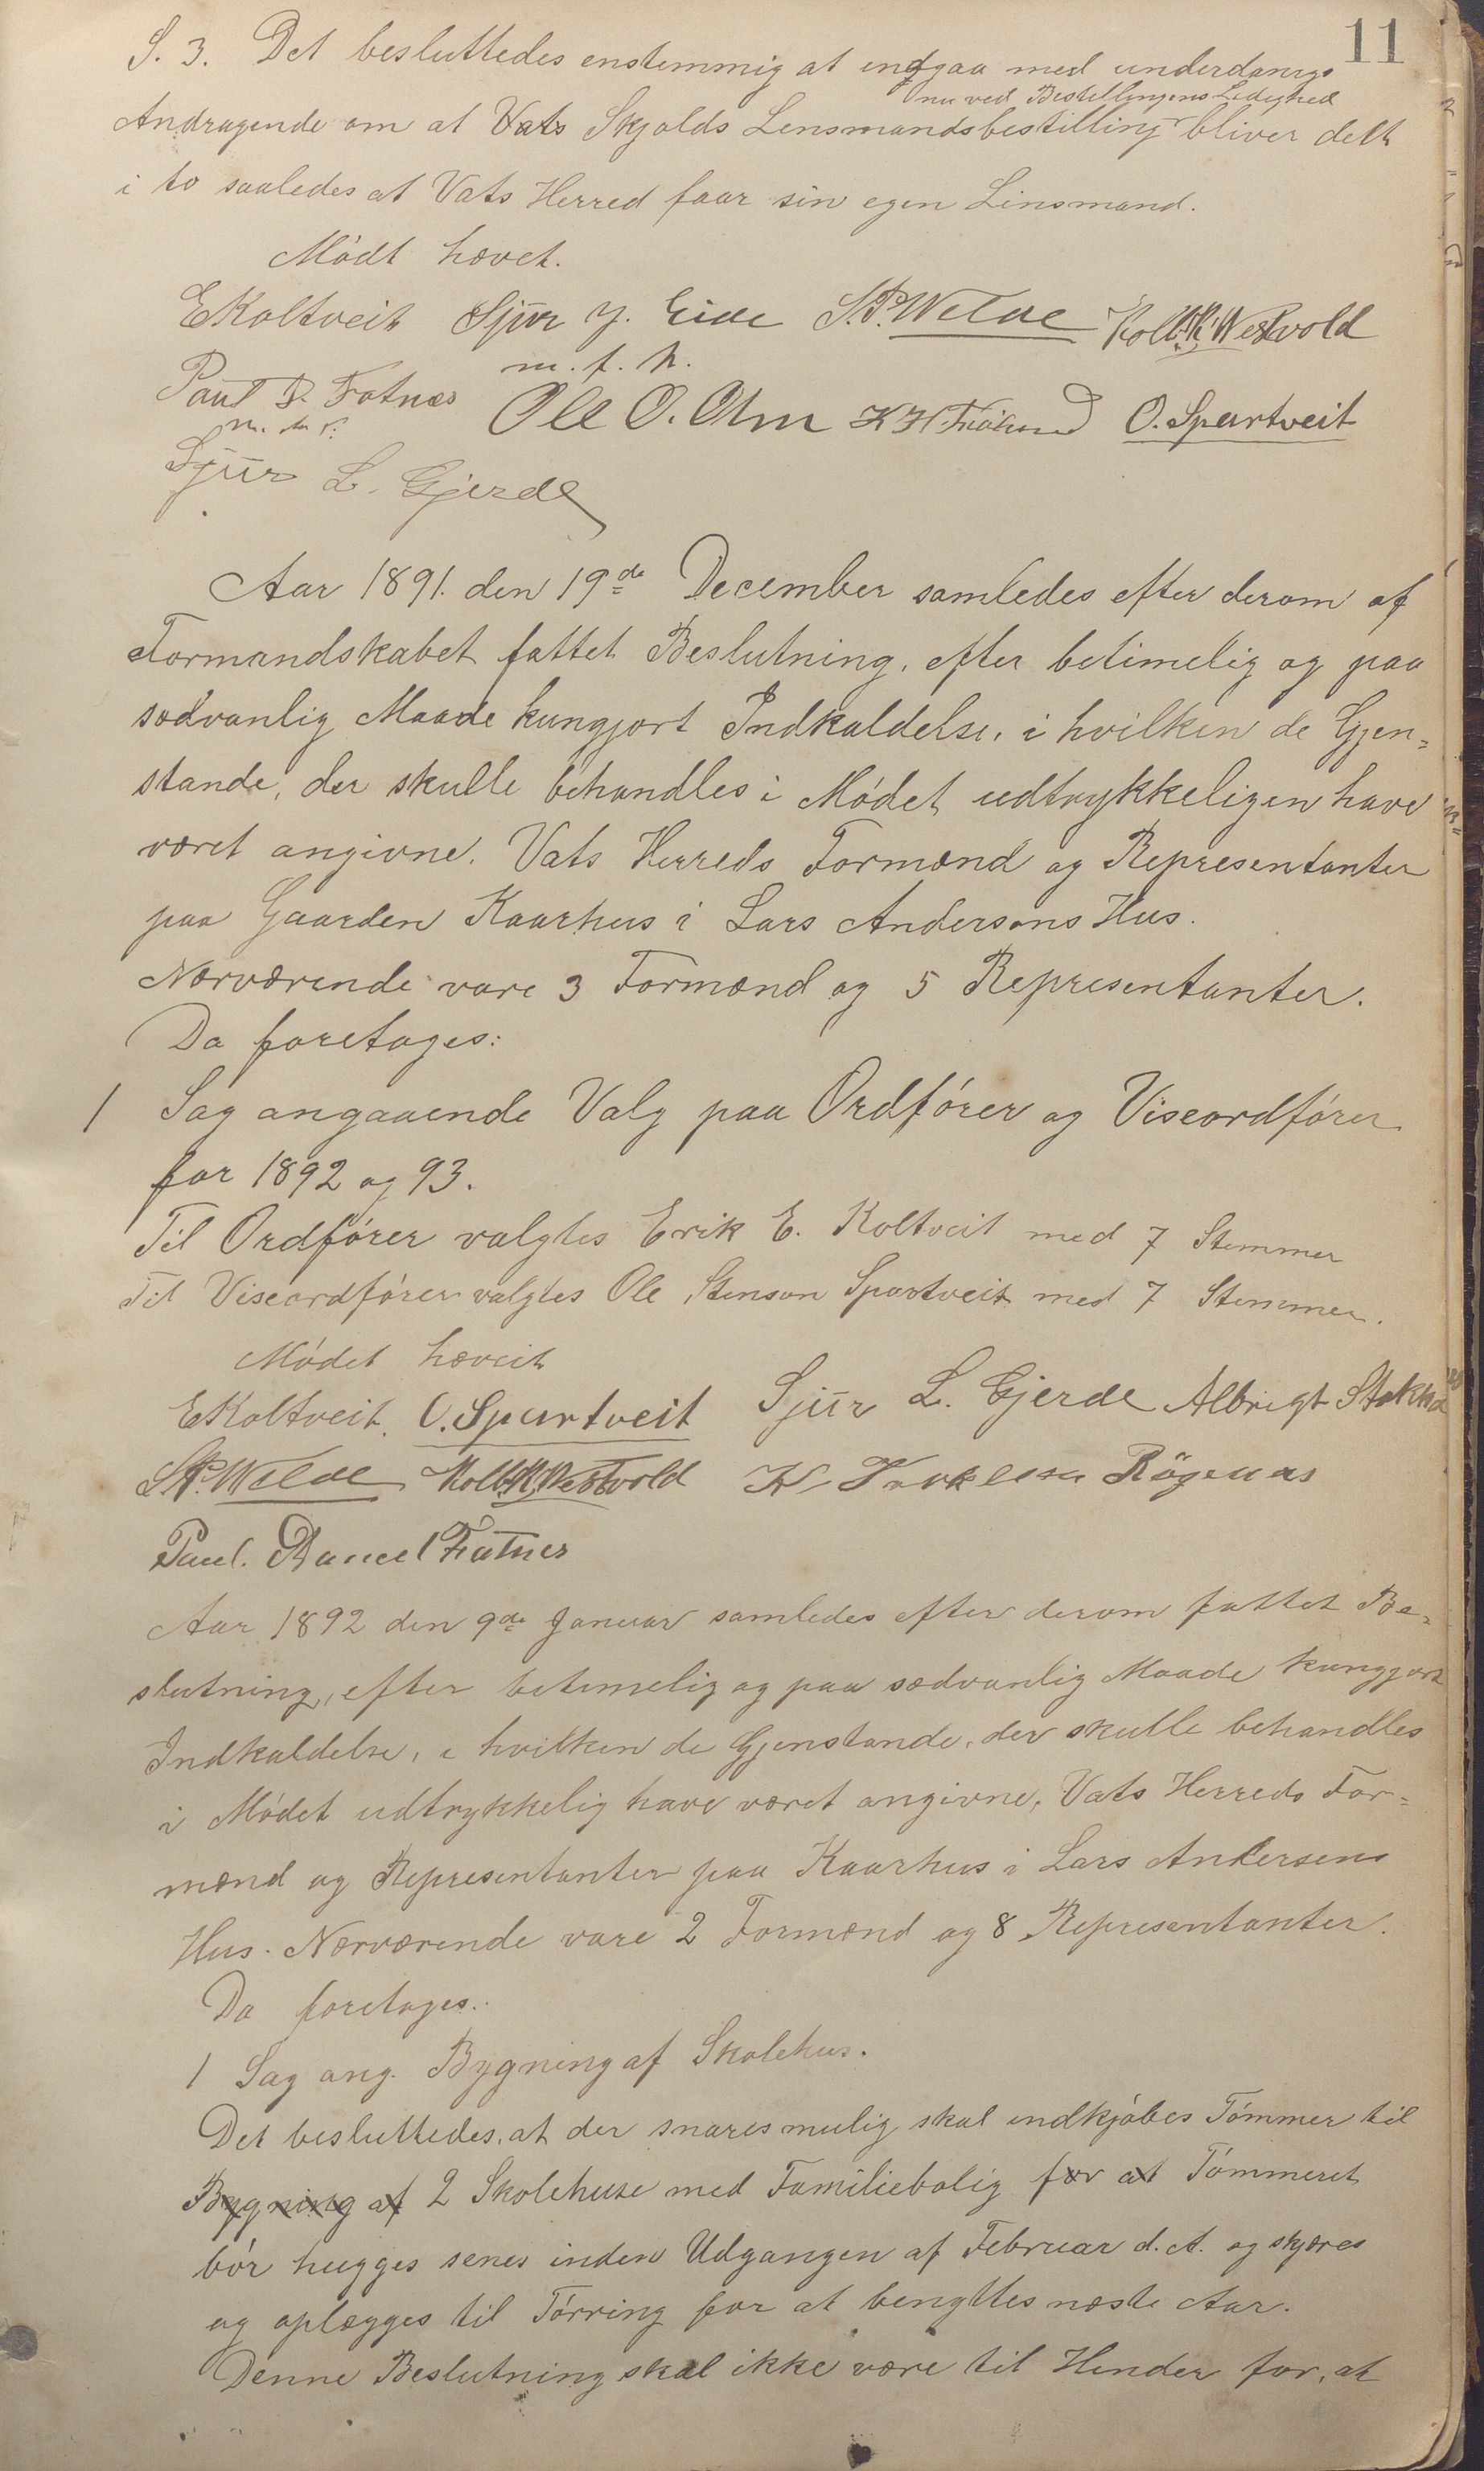 11
S. 3. Det besluttedes enstemmig at indgaa med underdanigs
nu ved Bestillingens Ledighed
Andragende om at Vats Skjolds Lensmandsbestilling bliver delt
i to saaledes at Vats Herred faar sin egen Linsmand.
Mödt hævet.
EKoltveit Sjur J. Eide S.P. Welde Kolb. K. Westvold
m. f. P.
Paul D. Fatnæs Ole O. Alm O. Spartveit
Sjur L. Gjerde
Aar 1891. den 19de December samledes efter derom af
Formandskabet fattet Beslutning, efter betimelig og paa
sædvanlig Maade kungjort Indkaldelse, i hvilken de Gjen-
stande, der skulle behandles i Mödet udtrykkeligen have
været angivne. Vats Herreds Formænd og Representanter
paa Gaarden Kaarhus i Lars Andersons Hus.
Nærværende vare 3 Formænd og 5 Representanter.
Da foretoges:
1 Sag angaaende Valg paa Ordförer og Viseordförer
for 1892 og 93.
Til Ordförer valgtes Erik E. Koltveit med 7 Stemmer
Til Viseordförer valgtes Ole Stenson Spartveit med 7 Stemmer.
Mödet hæveit
EKoltveit. O. Spartveit Sjur L. Gjerde Albrigt
S.P. Welde Kolb. K. Westvold K Rögenæs
Paul. Daneel Fatnes
Aar 1892 den 9de Januar samledes efter derom fattet Be-
slutning, efter betimelig og paa sædvanlig Maade kungjort
Indkaldelse, i hvilken de Gjenstande, der skulle behandles
i Mödet udtrykkelig have været angivne, Vats Herreds For-
mænd og Representanter paa Kaarhus i Lars Andersens
Hus. Nærværende vare 2 Formænd og 8 Representanter.
Da foretoges.
1 Sag ang. Bygning af Skolehus.
Det besluttedes, at der snares mulig skal indkjöbes Tömmer til
Bygning af 2 Skolehuse med Familiebolig for at Tömmeret
bör hugges senes inden Udgangen af Februar d. A. og skjæres
og oplægges til Törring for at benyttes næste Aar.
Denne Beslutning skal ikke være til Hinder for, at